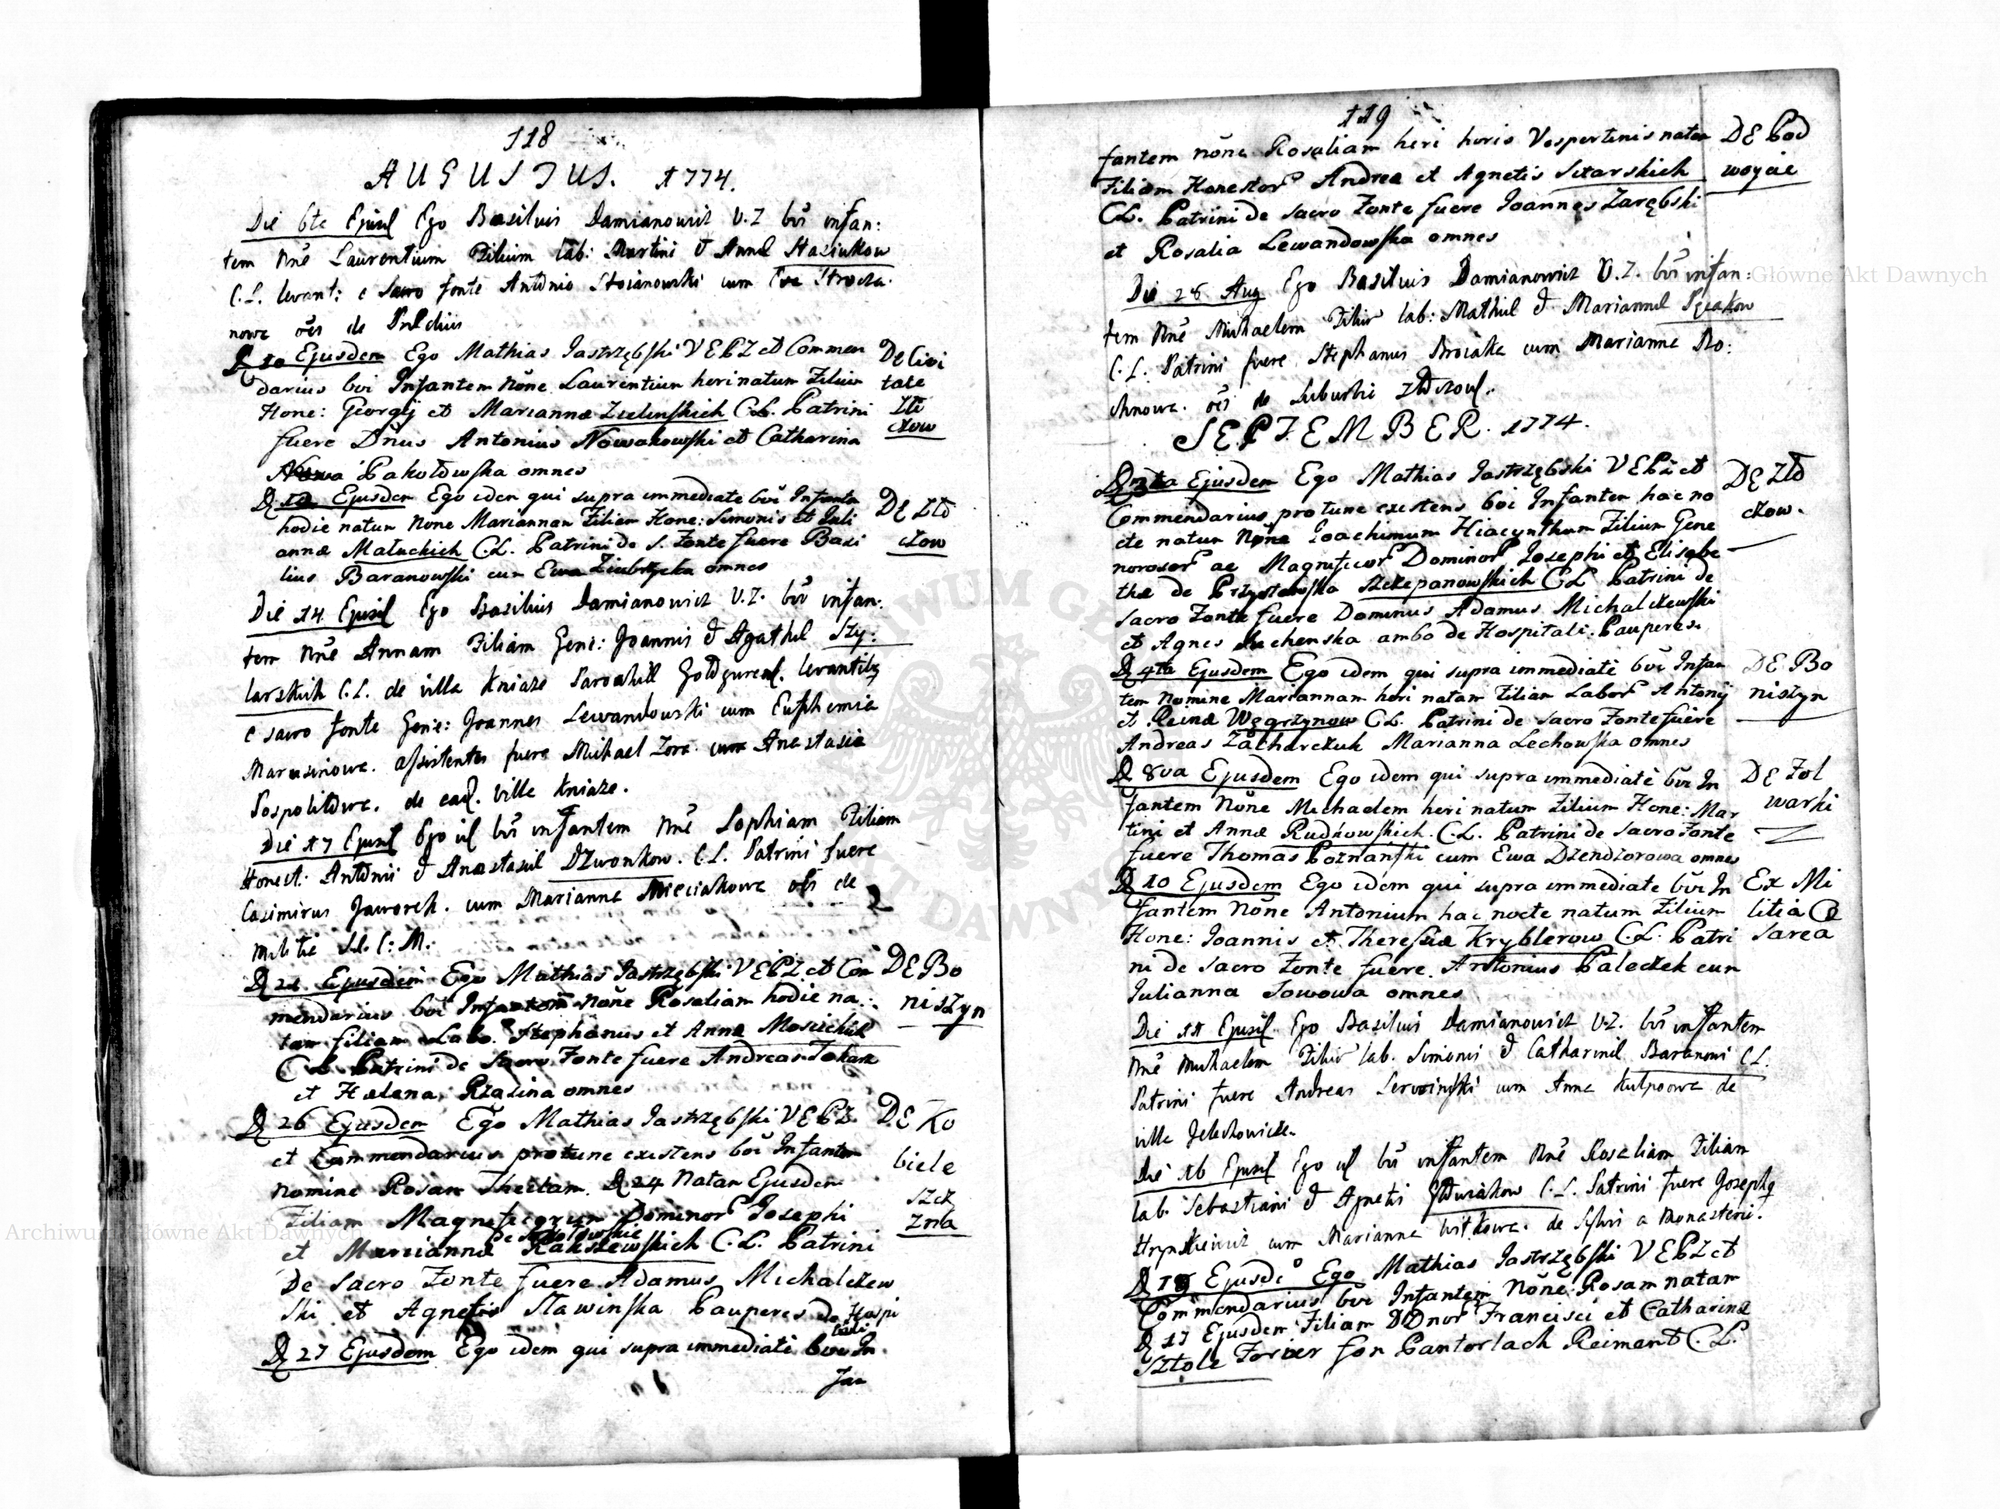 118
AUGUSTUS. 1774.
Die 6ta Ejusd Ego Basilius Damianowicz V.Z. bī infan:
tem Nnē Laurentium Filium Lab: Martini & Annæ Staziukow
C.L. levant: e Sacro fonte Antōnio Stoianowski cum Eva
nowa oēs de
D 10 Ejusdem Ego Mathias Iastrzębski VEPZ et Commen
darius bvi Infantem Nōne Laurentium heri natum Filium
Hone: Georgij et Mariannæ Zielinskich C.L. Patrini
fuere Dn̄us Antonius Nowakowski et Catharina
Pakołowska omnes
DE Civi
tate
Zło
czow
D 12 Ejusdem Ego idem qui supra immediate bvi Infante
hodie natum None Mariannam Filiam Hone: Simonis et Juli
annæ Małuckich C.L. Patrini de S. Fonte fuere Basi
lius Baranowski cum Ewa omnes
DE Zło
czow
Die 14 Ejusd Ego Basilius Damianowicz V.Z. bvi infan:
tem Nnē Annam Filiam Gene: Joannis & Agathæ Szy:
larskich C.L. de villa Kniaze levantibq
e sacro fonte Gene: Joannes Lewandowski cum Euphemia
Marusinowa. assistentes fuere Michael Zora cum Anastasia
Pospolitowa. de ead. ville Kniaze.
Die 17 Ejusd Ego id bvi infantem Nnē Sophiam Filiam
Honest: Antōnii & Anastasiæ Dzwonkow. C.L. Patrini fuere
Casimirus Jaworek. cum Marianna Mieciakowa oēs de
Militie S.C.M.
D 21 Ejusdem Ego Mathias Iastrzębski VEPZ et Com
mendarius bvi Infantem None Rosaliam hodie na
tam filiam Labo. Stephanus et Anna
C L Patrini de Sacro Fonte fuere Andreas
et Helena omnes
DE Bo
niszyn
D 26 Ejusdem Ego Mathias Iastrzębski VEPZ
et Commendarius protunc existens bvi Infantem
Nomine Rosam Theclam D 24 Natam Ejusdem
Filiam Magnificorum Dominor Josephi
et Mariannæ De Sokołowskie Rakszewskich C.L. Patrini
De Sacro Fonte fuere Adamus Michalczew
ski et Agnes Sławinska Pauperes de Hospi
tali
DE Ko
biele
szcz
zna
D 27 Ejusdem Ego idem qui supra immediati bvi In
fan
119
fantem nōne Rosaliam heri horis Vespertinis natam
Filiam Honestor Andrea et Agnetis Sitarskich
C.L. Patrini de Sacro Fonte fuere Joannes Zarębski
et Rosalia Lewandowska omnes
DE Pod
woycie
Die 28 Aug Ego Basilius Damianowicz V.Z. bvi infan:
tem Nnē Michaelem Filiū Lab: Mathiæ & Mariannæ
C.L. Patrini fuere Stephanus cum Marianna Mo:
chnowa. oēs de Suburbii Złoczoviæ.
SEPTEMBER. 1774.
D 3tia Ejusdem Ego Mathias Iastrzębski VEPZ et
Commendarius protunc existens bvi Infantem hac no
cte natum None Joachimum Hiacynthum Filium Gene
rosor ac Magnificor Dominor Josephi et Elisabe
tha de Szczepanowskich C L Patrini de
Sacro Fonte fuere Dominus Adamus Michalczewski
et Agnes ambo de Hospitali Pauperes.
DE Zło
czow.
D 4ta Ejusdem Ego idem qui supra immediati bvi Infan
tem Nomine Mariannam heri natam Filiam Labor Antonij
et Reinæ Węgrzynow C.L. Patrini de Sacro Fonte fuere
Andreas Zacharczuk Marianna Lechowska omnes
DE Bo
niszyn
D 8va Ejusdem Ego idem qui supra immediati bvi In
fantem Nōne Michaelem heri natum Filium Hone: Mar
tini et Annæ Rudnowskich C.L. Patrini de Sacro Fonte
fuere Thomas Poznański cum Ewa Dzendzorowa omnes
DE Fol
warki
D 10 Ejusdem Ego idem qui supra immediate bvi In
fantem Nōne Antōnium hac nocte natum Filium
Hone: Joannis et Theresiæ Kryblerow C.L. Patri
ni de Sacro Fonte fuere Antonius Paleczek cum
Julianna Sowowa omnes
Ex Mi
litia Cæ
sarea
Die 11 Ejusd. Ego Basilius Damianowicz V.Z. bvi infantem
Nnē Michaelem Filiū Lab. Simonis & Catharinæ Baranowi C.L.
Patrini fuere Andreas cum Anna Kulpoowa de
villa Jelechowicze.
Die 16 Ejusd Ego id bvi infantem Nnē Rosaliam Filiam
Lab. Sebastiani & Agneti C.L. Patrini fuere Josephq
Hrynkiewicz cum Marianna Witkowa. de Sylvi a Monasterii.
D 19 Ejusde Ego Mathias Iastrzębski VEPZ et
Commendarius bvi Infantem Nōne Rosam natam
D 17 Ejusdem Filiam DDnor Francisci et Catharinæ
Sztolc Forier fon Pantorlach Reiment C.L.
Archiwum Główne Akt Dawnych